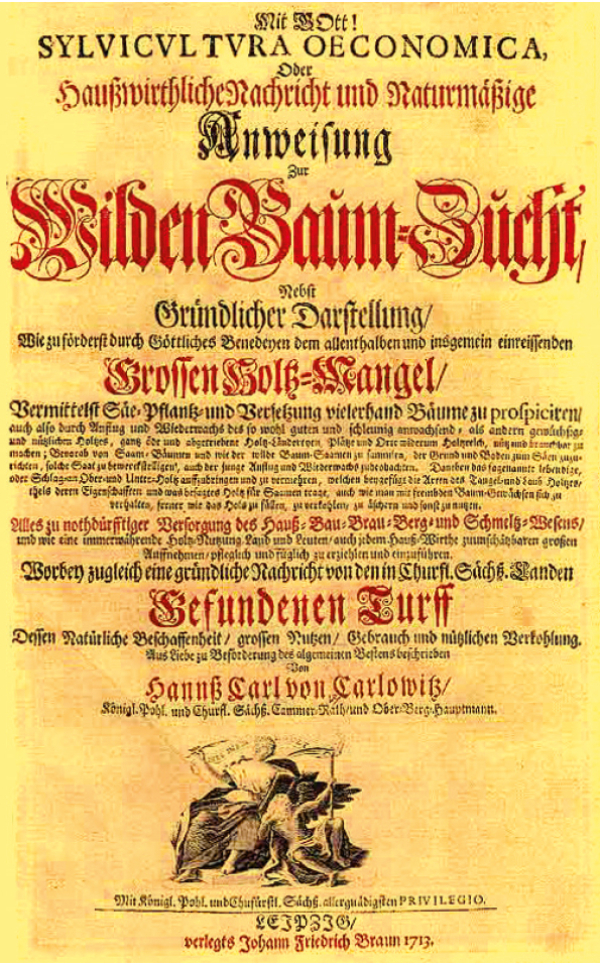 Mit GOtt!
SYLVICVLTVRA OECONOMICA,
Oder
Haußwirthliche Nachricht und Naturmäßige
Anweisung
Zur
Wilden Baum-Zucht,
Nebst
Gründlicher Darstellung/
Wie zu förderst durch Göttliches Benedeyen dem allenthalben und insgemein einreissenden
Grossen Holtz-Mangel/
Vermittelst Säe-Pflantz- und Versetzung vielerhand Bäume zu prospiciren/
auch also durch Anflug und Wiederwachs des so wohl guten und schleunig anwachsend- als andern gewüchsig-
und nützlichen Holtzes, gantz öde und abgetriebene Holtz-Ländereyen, Plätze und Orte wiederum Holtzreich, nütz und brauchbar zu
machen; Bevorab von Saam-Bäumen und wie der wilde Baum-Saamen zu sammlen, der Grund und Boden zum Säen zuzu-
richten, solche Saat zu bewerckstelligen, auch der junge Anflug und Wiederwachs zu beobachten. Daneben das sogenannte lebendige,
oder Schlag-an Ober- und Unter-Holtz aufzubringen und zu vermehren, welchen beygefügt die Arten des Tangel- und Laub-Holtzes,
theils deren Eigenschafften und was besagtes Holtz für Saamen trage, auch wie man mit frembden Baum-Gewächsen sich zu
verhalten, ferner wie das Holtz zu fällen, zu verkohlen, zu äschern und sonst zu nutzen.
Alles zu nothdürfftiger Versorgung des Hauß-Bau-Brau-Berg- und Schmeltz-Wesens/
und wie eine immerwährende Holtz-Nutzung Land und Leuten/ auch jedem Hauß-Wirthe zu unschätzbaren großen
Auffnehmen/ pfleglich und füglich zu erziehlen und einzuführen.
Worbey zugleich eine gründliche Nachricht von den in Churfl. Sächß. Landen
Gefundenen Turff
Dessen Natürliche Beschaffenheit/ grossen Nutzen/ Gebrauch und nützlichen Verkohlung.
Aus Liebe zu Beförderung des algemeinen Bestens beschrieben
Von
Hannß Carl von Carlowitz/
Königl. Pohl. und Churfl. Sächß. Cammer-Rath/ und Ober-Berg-Hauptmann.
Mit Königl. Pohl. und Chufürstl. Sächß. allergnädigsten PRIVILEGIO.
LEIPZIG/
verlegts Johann Friedrich Braun 1713.